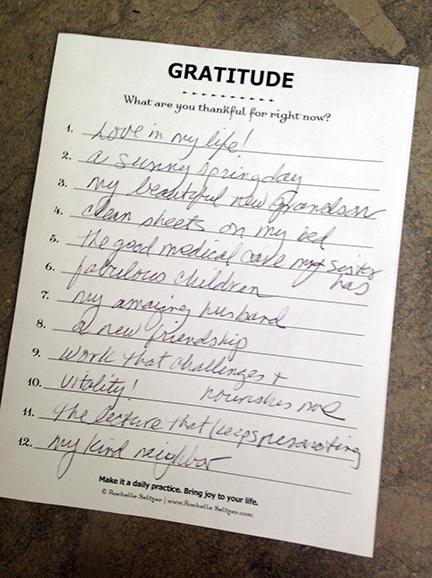 GRATITUDE
What are you thankful for right now?
1. Love in my life!
2. a sunny spring day
3. my beautiful new Grandson
4. clean sheets on my bed
5. the good medical care my sister
has
6. fabulous children
7. my amazing husband
8. a new friendship
9. work that challenges +
nourishes me
10. vitality!
11. the lecture that keeps resonating
12. my kind neighbor
Make it a daily practice. Bring joy to your life.
© Rochelle Seltzer | www.Rochelle Seltzer.com